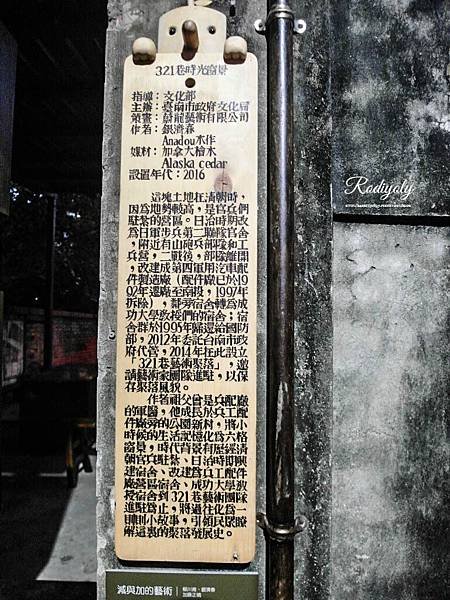 321巷時光窗景
指導：文化部
主辦：臺南市政府文化局
策畫：蔚龍藝術有限公司
作者：銀濟春
Anadou木作
媒材：加拿大檜木
Alaska cedar
設置年代：2016
這塊土地在清朝時，
因為地勢較高，是官兵們
駐紮的營區。日治時期改
為日軍步兵第二聯隊官舍
，附近有山砲兵部隊和工
兵營，二戰後，部隊離開
，改建成第四軍用汽車配
件製造廠（配件廠已於19
92年遷廠至南投，1997年
拆除），鄰旁宿舍轉為成
功大學教授們的宿舍；宿
舍群於1995年歸還給國防
部，2012年委託台南市政
府代管，2014年在此設立
「321巷藝術聚落」，邀
請藝術家團隊進駐，以保
存聚落風貌。
作者祖父曾是兵配廠
的軍醫，他成長於兵工配
件廠旁的公園新村，將小
時候的生活記憶化為六格
窗景，時代背景有歷經清
朝官兵駐紮、日治時期興
建宿舍、改建為兵工配件
廠營區宿舍、成功大學教
授宿舍到321巷藝術團隊
進駐為止，將過往化為一
則則小故事，引領民眾瞭
解這裏的聚落發展史。
減與加的藝術
Rodiyoly